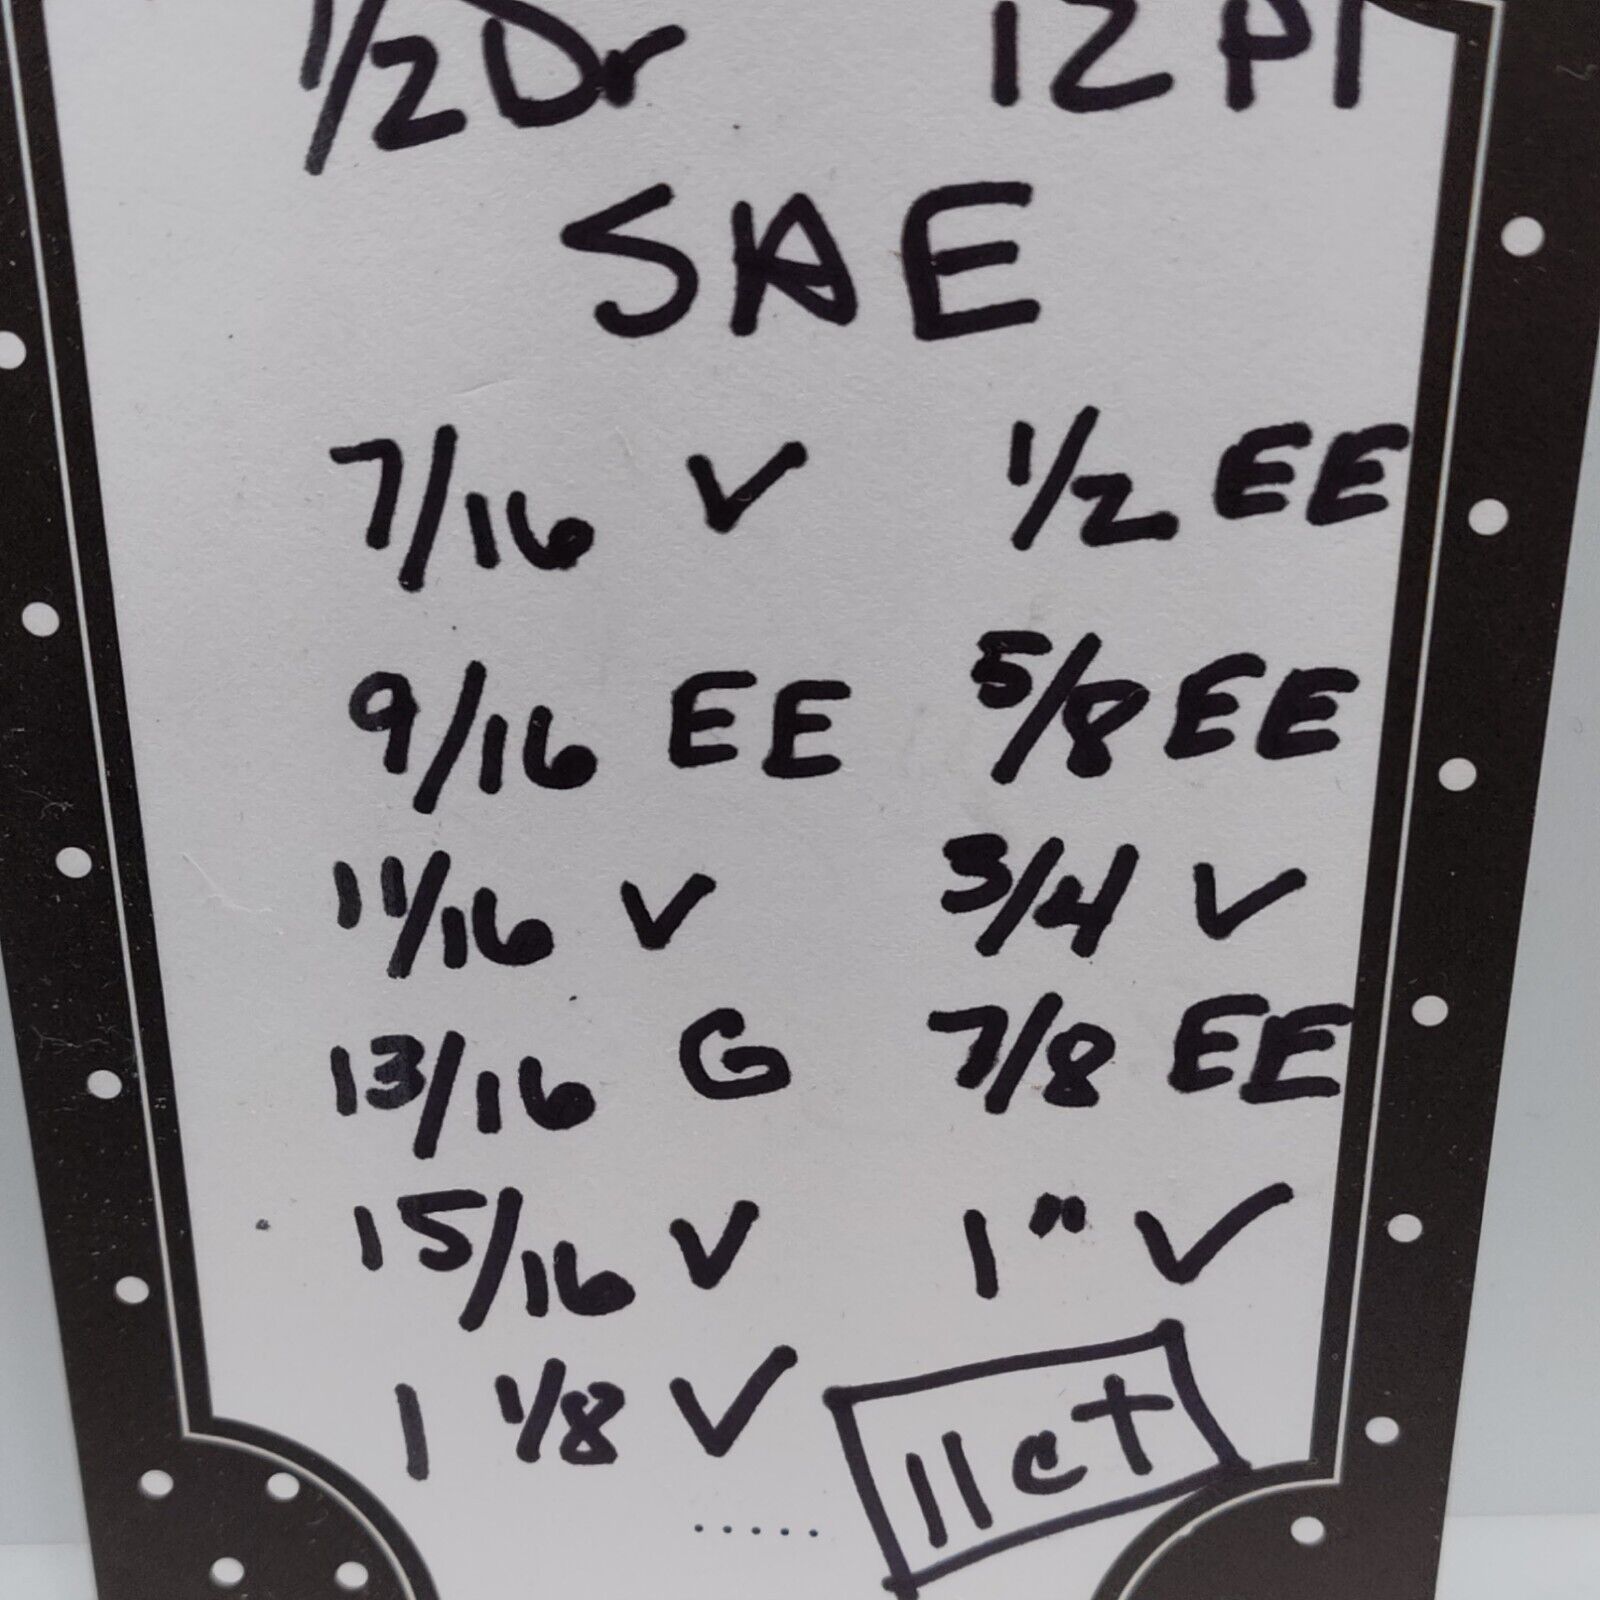 1/2 Dr 12 PT
SAE
7/16 V 1/2 EE
9/16 EE 5/8 EE
11/16 V 3/4 V
13/16 G 7/8 EE
15/16 V 1" V
1 1/8 V 11ct